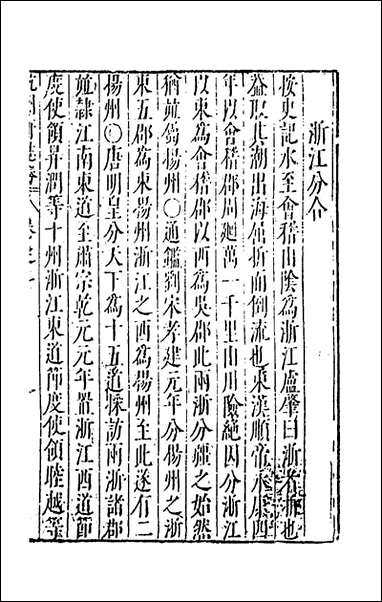 浙江分合
按史記水至會稽山陰為浙江盧肇曰浙者折也
蓋取其潮出海屈折而倒流也東漢順帝永康四
年以會稽郡周廻萬一千里山川險絕因分浙江
以東為會稽郡以西為吳郡此兩浙分疆之始然
猶並屬揚州〇通鑑劉宋孝建元年分揚州之浙
東五郡為東揚州浙江之西為揚州至此遂有二
揚州〇唐明皇分天下為十五道採訪兩浙諸郡
並隸江南東道至肅宗乾元元年置浙江西道節
度使領昇潤等十州浙江東道節度使領睦越等